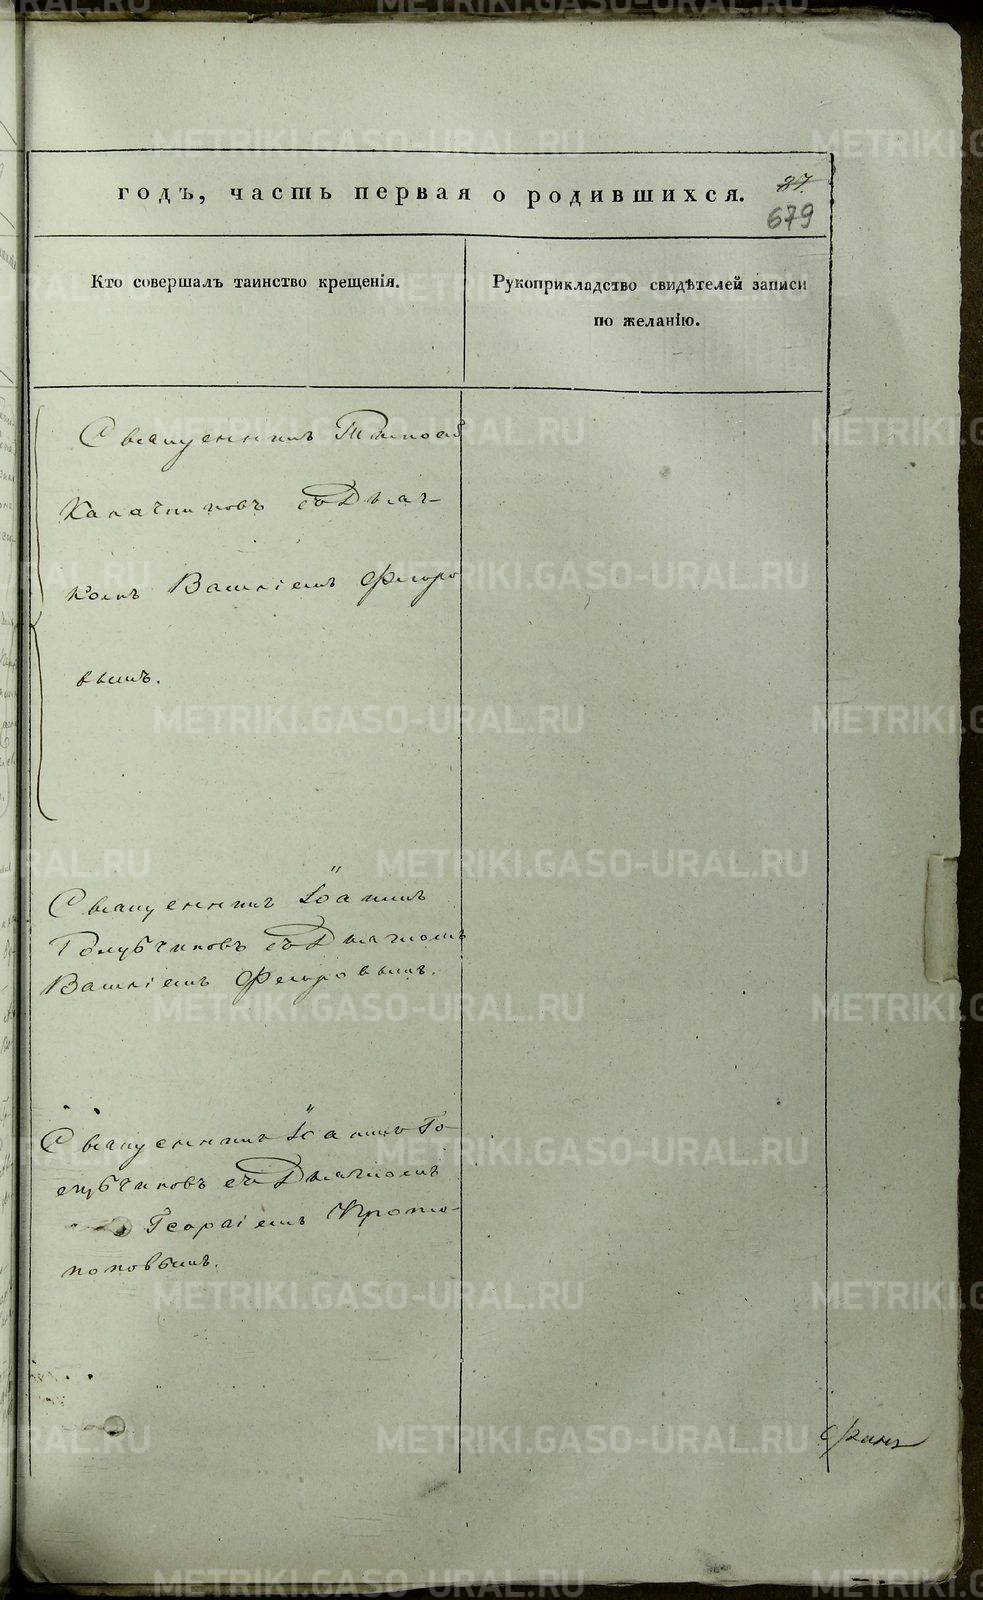 годъ, часть первая о родившихся.
87.
679
Кто совершалъ таинство крещенія.
Рукоприкладство свидѣтелей записи
по желанію.
Священникъ Тимоѳѣ
Калачниковъ съ Дьяч-
комъ Василіемъ Флоро
вымъ.
Священникъ Іоаннъ
Голубчиковъ съ Дьячкомъ
Василіемъ Флоровымъ.
Священникъ Іоаннъ Го-
лубчиковъ съ Дьячкомъ
Георгіемъ Прото-
поповымъ.
METRIKI.GASO-URAL.RU